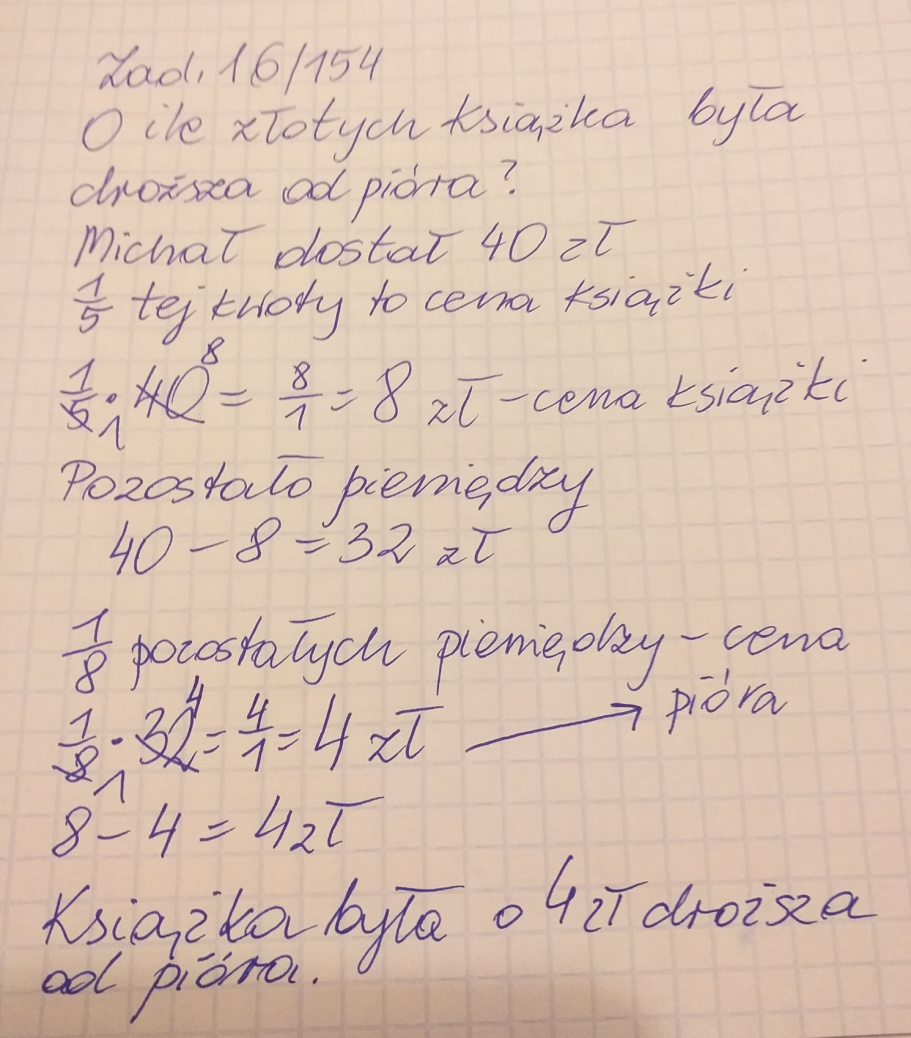 Zad. 16/154
O ile złotych książka była
droższa od pióra?
Michał dostał 40 zł
1/5 tej kwoty to cena książki
1/5 · 40 8 = 8/1 = 8 zł - cena książki
1
Pozostało pieniędzy
40 - 8 = 32 zł
1/8 pozostałych pieniędzy - cena
pióra
1/8 · 32 4 = 4/1 = 4 zł →
1
8 - 4 = 4 zł
Książka była o 4 zł droższa
od pióra.